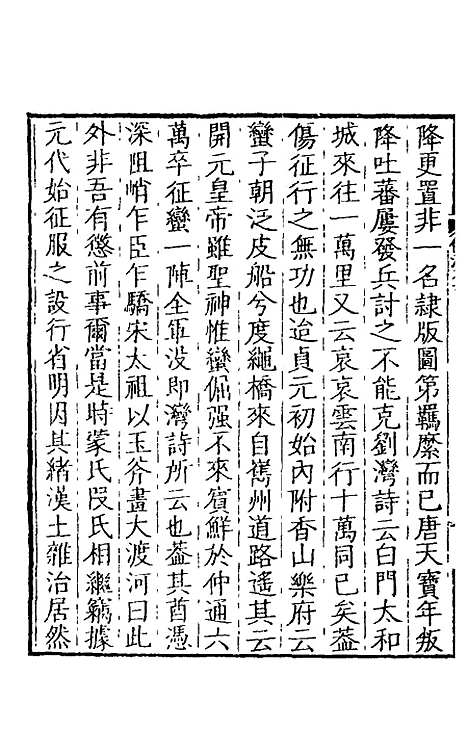 降更置非一名隷版圖第羈縻而已唐天寶年叛
降吐蕃屢發兵討之不能克劉灣詩云白門太和
城來往一萬里又云哀哀雲南行十萬同已矣葢
傷征行之無功也迨貞元初始內附香山樂府云
蠻子朝泛皮船兮度繩橋來自嶲州道路遙其云
開元皇帝雖聖神惟蠻倔强不來賓鮮於仲通六
萬卒征蠻一陣全軍没即灣詩所云也葢其酋憑
深阻峭乍臣乍驕宋太祖以玉斧畫大渡河曰此
外非吾有懲前事爾當是時蒙氏段氏相繼竊據
元代始征服之設行省明因其緒漢土雜治居然